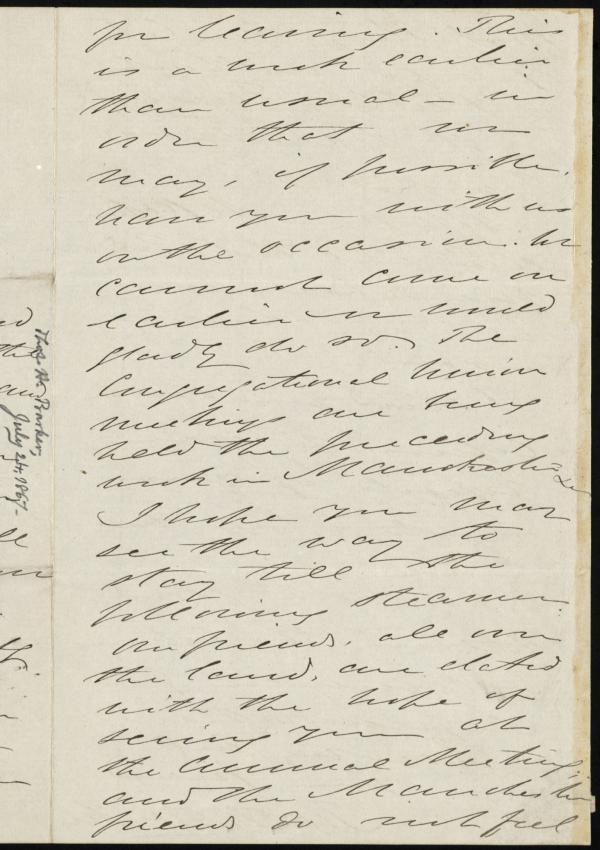 for leaving. This
is a week earlier
than usual - in
order that we
may, if possible,
have you with us
on the occasion. We
cannot come on
earlier or would
gladly do so. The
Congregational Union
meetings are being
held the preceding
week in Manchester
I hope you may
see the way to
stay till the
following steamer.
Our friends, all over
the land, are elated
with the hope of
seeing you at
the Annual Meeting,
and the Manchester
friends do not feel
Barker,
July 24, 1867-